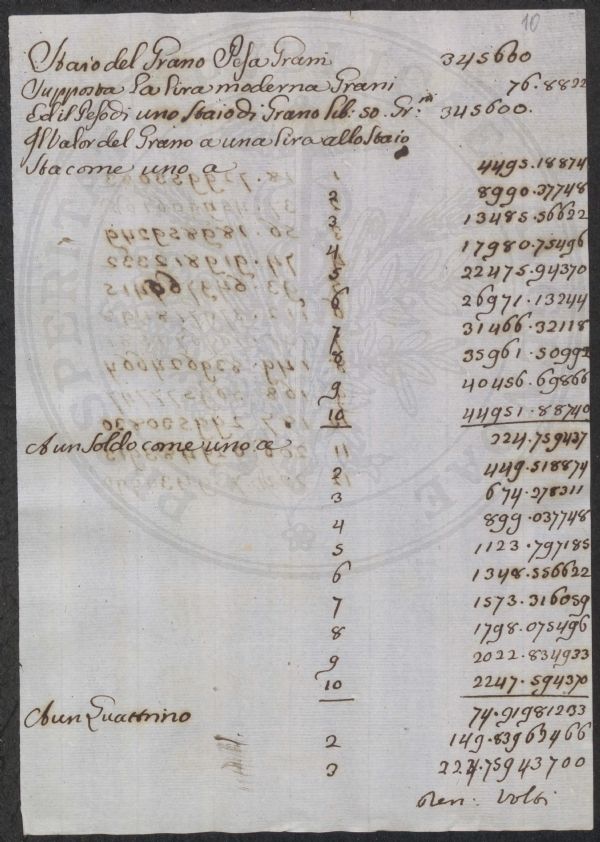 10
Staio del Grano Pesa Grani 345600
Supposta La Lira moderna Grani 76.8822
Ed il Peso di uno staio di Grano lib: 50 Gr:ni 345600.
Il Valor del Grano a una Lira allo Staio
Sta come uno a 1 4495.18874
2 8990.37748
3 13485.56622
4 17980.75496
5 22475.94370
6 26971.13244
7 31466.32118
8 35961.50992
9 40456.69866
10 44951.88740
A un Soldo come uno a 224.759437
2 449.518874
3 674.278311
4 899.037748
5 1123.797185
6 1348.556622
7 1573.316059
8 1798.075496
9 2022.834933
10 2247.594370
A un Quattrino 74.91981233
2 149.83963466
3 224.75943700
Volti